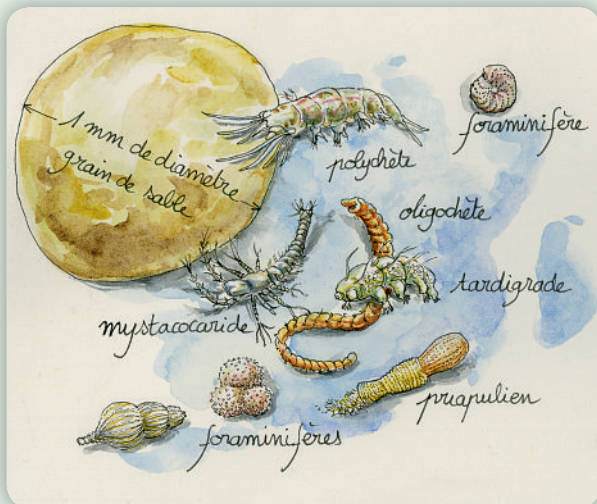 1 mm de diamètre
grain de sable
foraminifère
polychète
oligochète
tardigrade
mystacocaride
priapulien
foraminifères